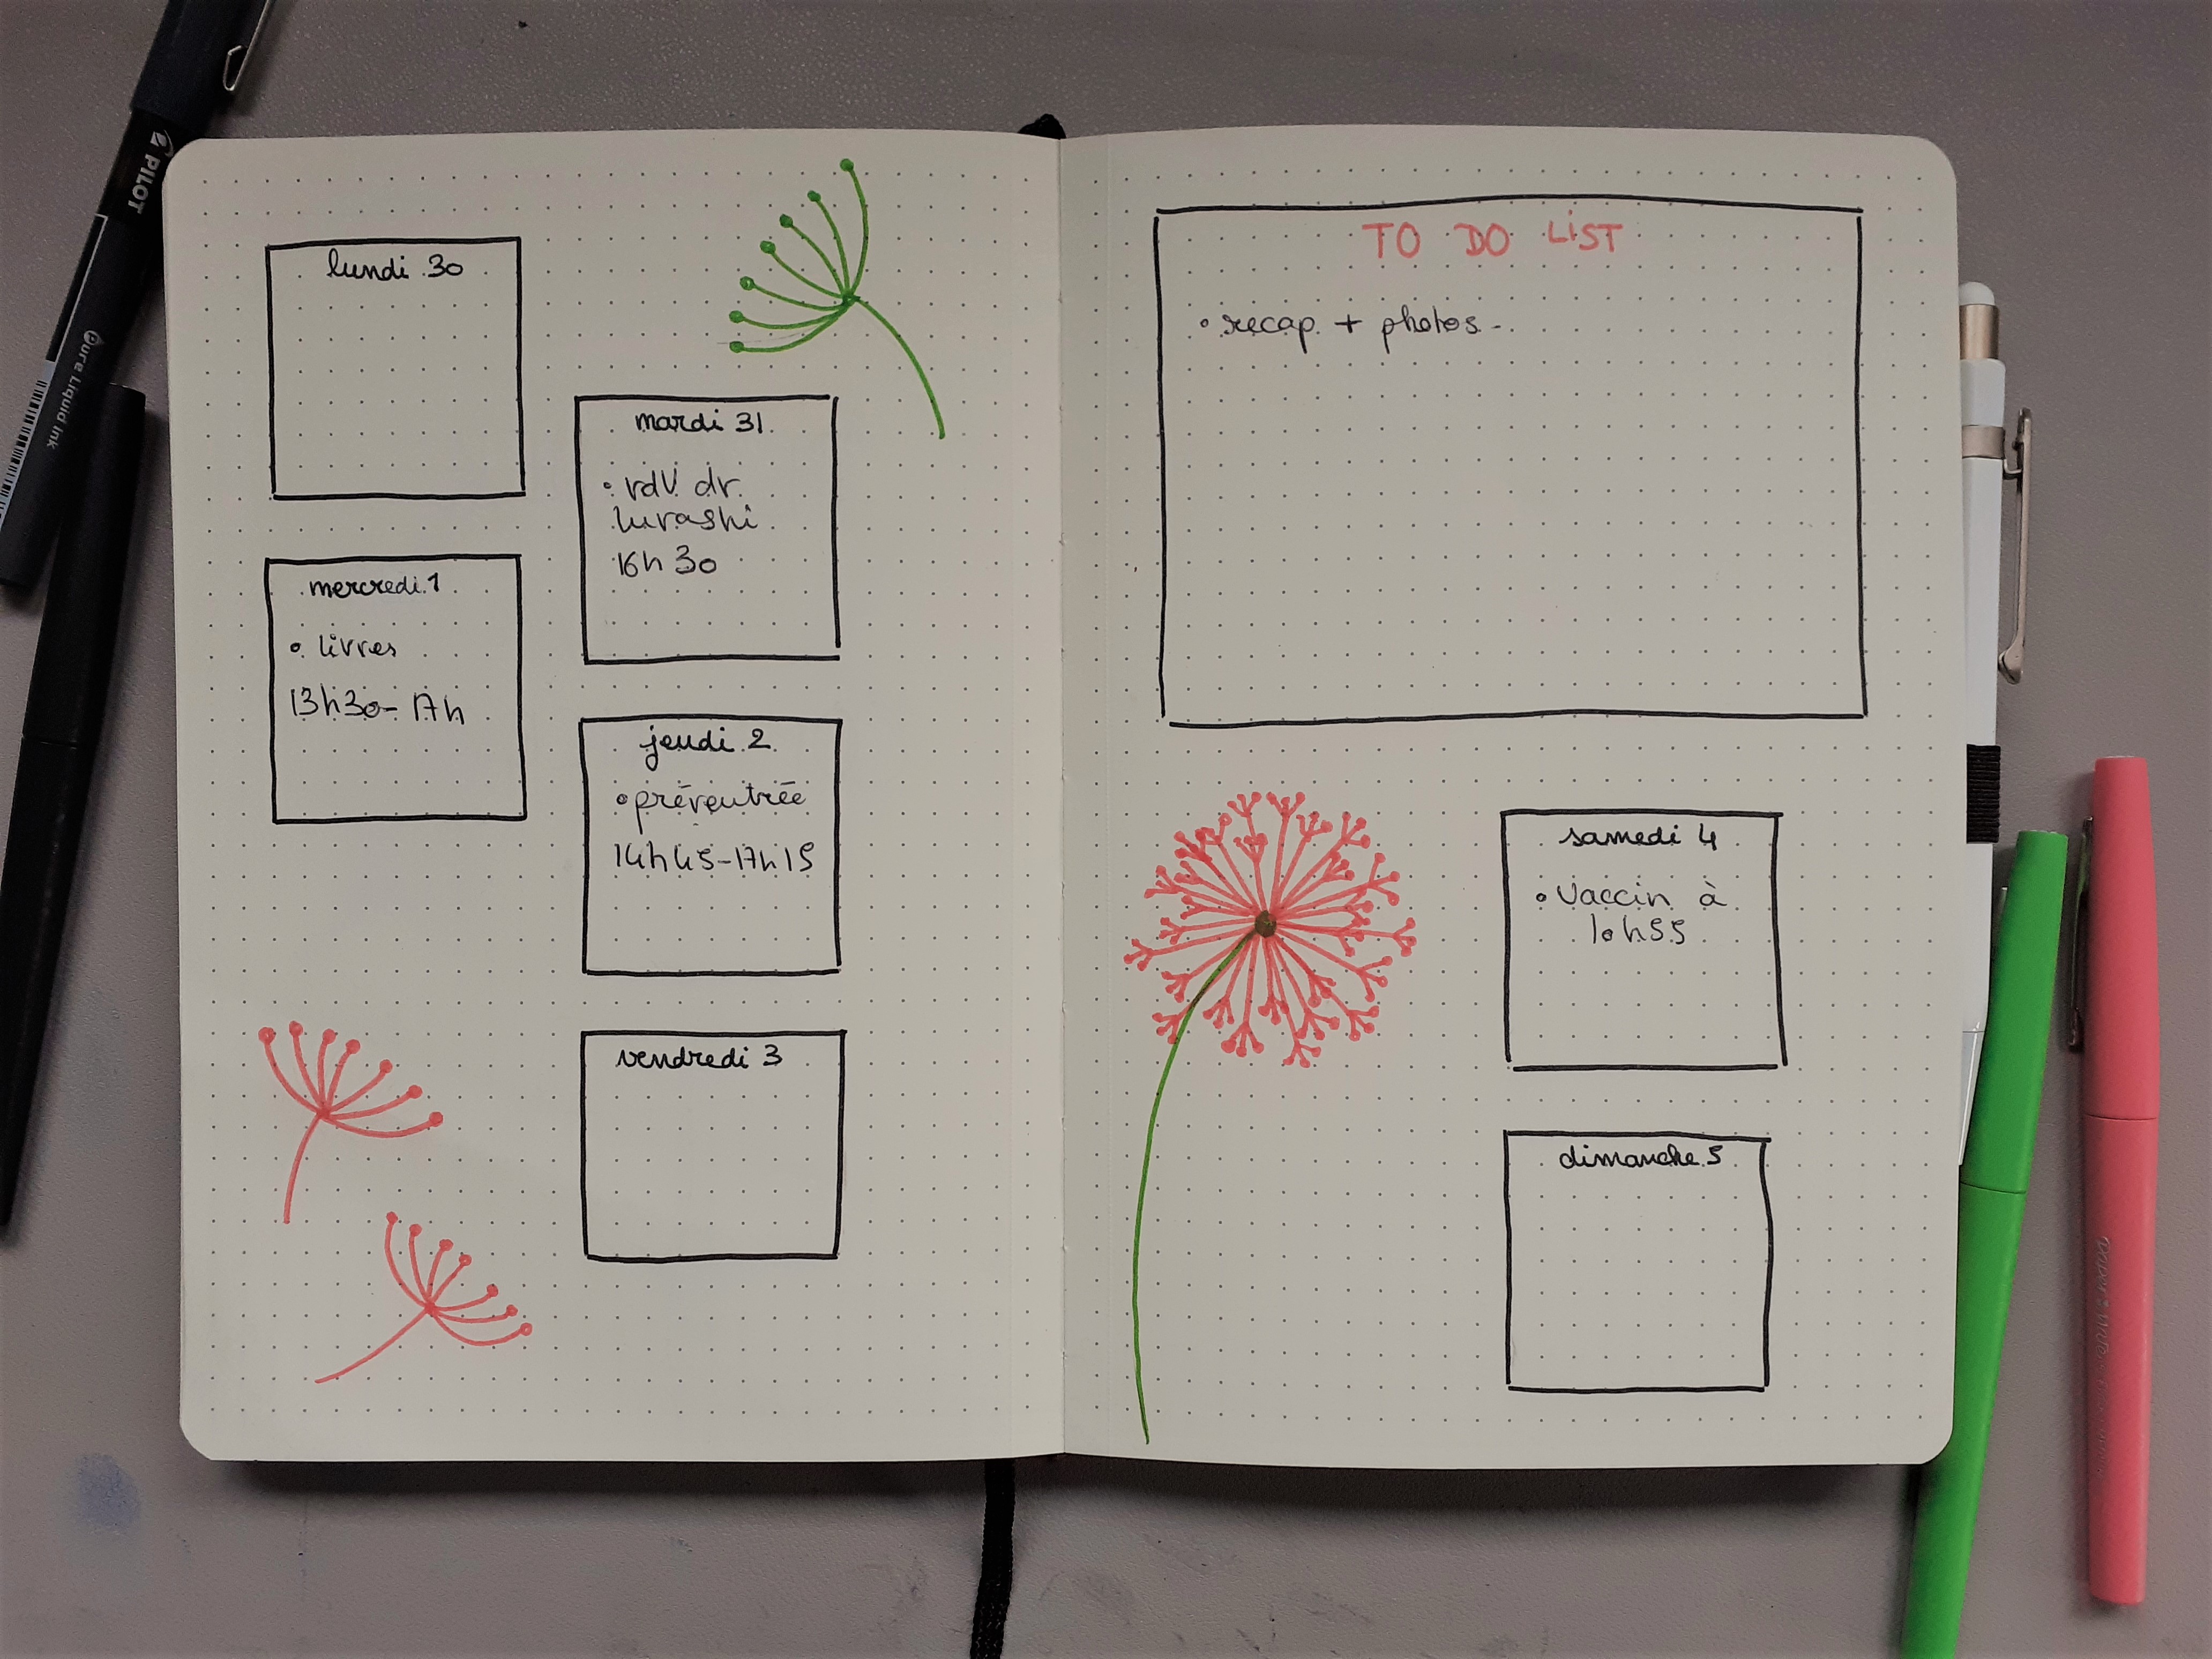 PILOT
Pure Liquid Ink
lundi 30
mardi 31
• rdv dr.
lurashi
16h30
mercredi 1
• livres
13h30-17h
jeudi 2
• prérentrée
14h45-17h15
vendredi 3
TO DO LIST
• recap + photos
samedi 4
• vaccin à
10h55
dimanche 5